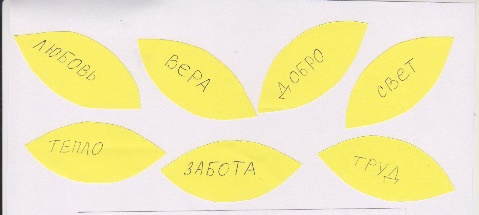 ЛЮБОВЬ
ВЕРА
ДОБРО
СВЕТ
ТЕПЛО
ЗАБОТА
ТРУД